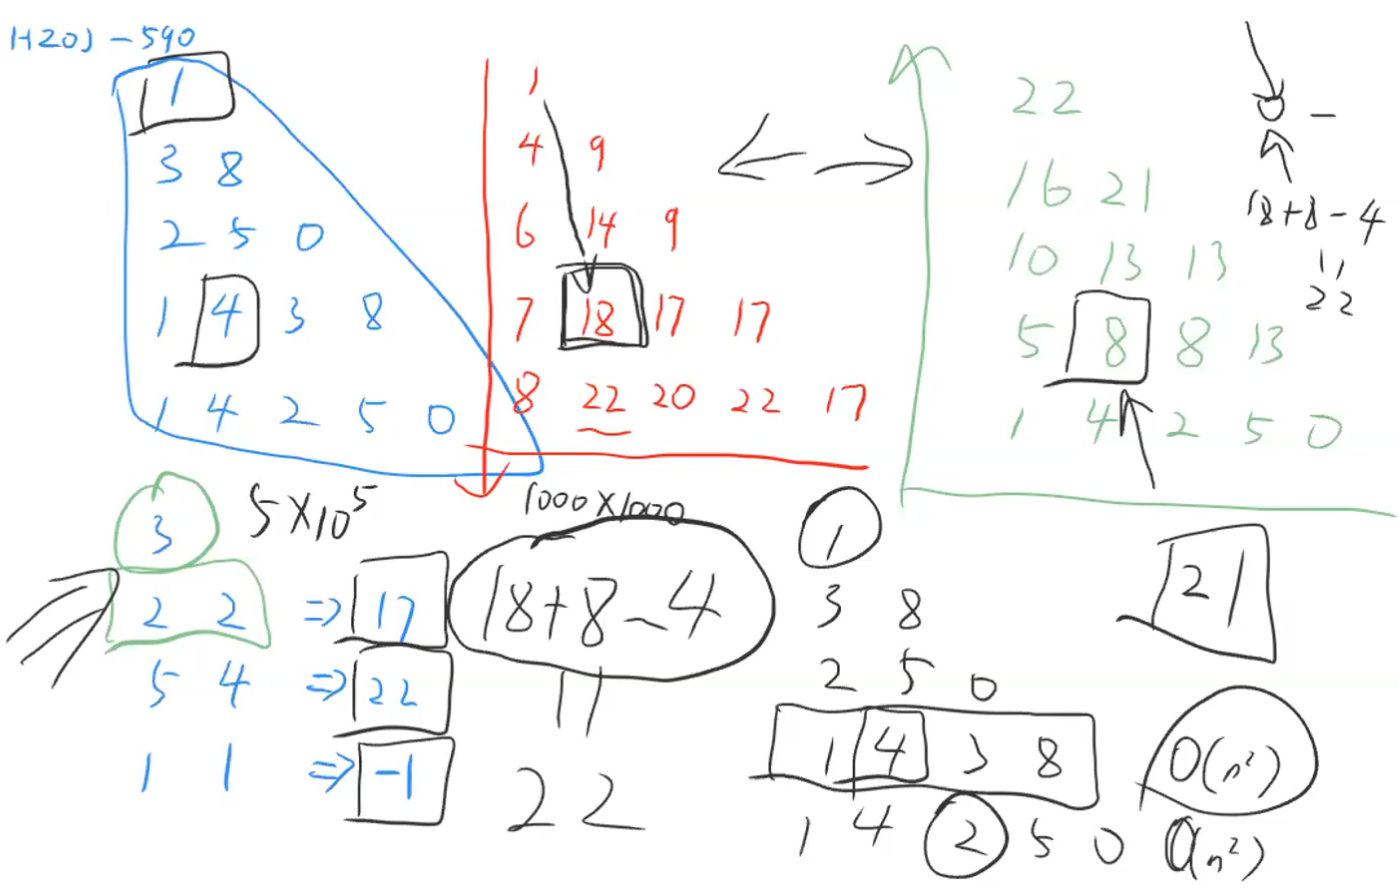 HZOJ-590
1
3 8
2 5 0
1 4 3 8
1 4 2 5 0
1
4 9
6 14 9
7 18 17 17
8 22 20 22 17
22
16 21
10 13 13
5 8 8 13
1 4 2 5 0
18+8-4
11
22
3
2 2 => 17
5 4 => 22
1 1 => -1
5×10⁵
1000×1000
18+8-4
11
22
1
3 8
2 5 0
1 4 3 8
1 4 2 5 0
21
O(n²)
O(n²)